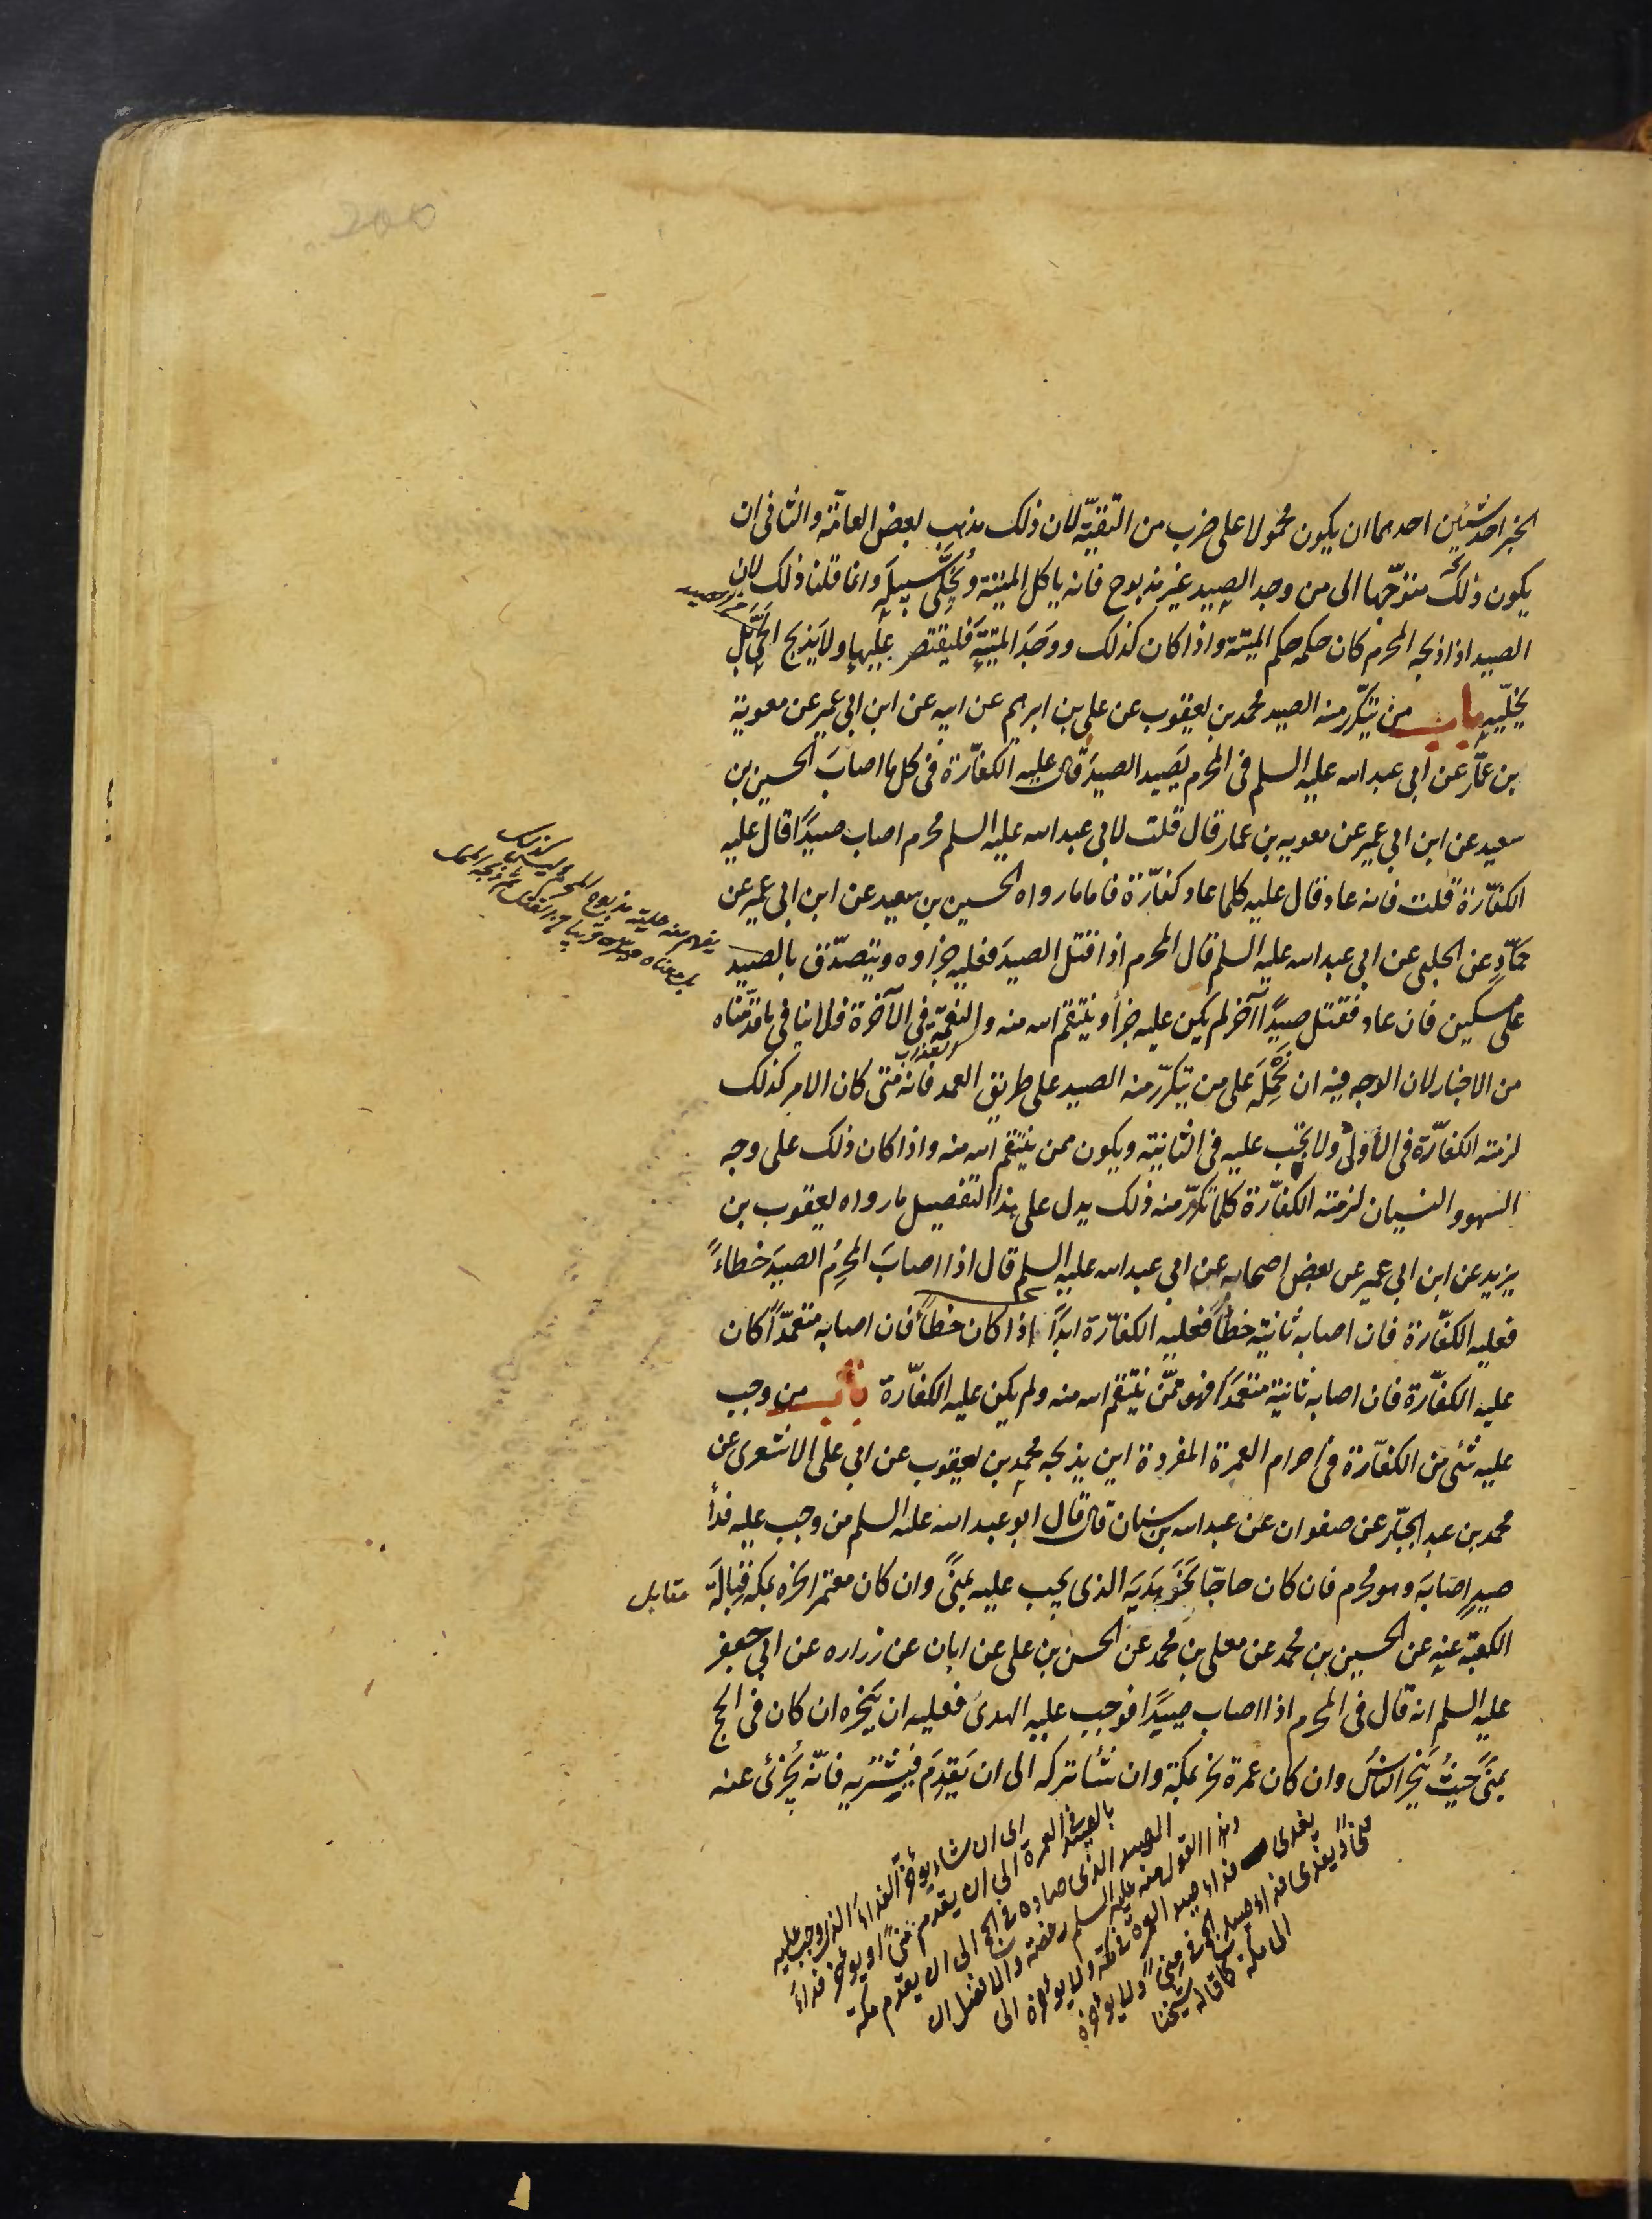 الخبر احد شيئين احدهما ان يكون محمولا على ضرب من التقيّة لان ذلك مذهب بعض العامّة والثاني ان
يكون ذلك متوجّها الى من وجد الصيد غير مذبوح فانه ياكل الميتة ويُخَلّى سبيلَه وانما قلنا ذلك لان
الصيد اذا ذبحه المحرم كان حكمه حكم الميتة واذا كان كذلك ووَجَدَ الميتةَ فليقتصر عليها ولا يَذبح الحَيّ بَل
يخلّيه باب من يتكرّر منه الصيد محمد بن يعقوب عن علي بن ابرهيم عن ابيه عن ابن ابي عمير عن معوية
بن عمّار عن ابي عبد الله عليه السلم في المحرم يَصيد الصيدَ قال عليه الكفّارة في كل ما اصابَ الحسين بن
سعيد عن ابن ابي عمير عن معويه بن عمار قال قلت لابي عبد الله عليه السلم محرم اصاب صيدًا قال عليه
الكفّارة قلت فانه عاد قال عليه كلما عاد كفّارة فاما ما رواه الحسين بن سعيد عن ابن ابي عمير عن
حمّادٍ عن الحلبي عن ابي عبد الله عليه السلم قال المحرم اذا قتل الصيدَ فعليه جزاوه ويتصدّق بالصيد
على مسكين فان عاد فقتل صيدًا آخر لم يكن عليه جزاء وينتقم الله منه والنقمة في الآخرة فلا ينافي ما قدّمناه
من الاخبار لان الوجه فيه ان نَحْمِلَه على من يتكرّر منه الصيد على طريق العمد فانه متى كان الامر كذلك
لزمته الكفّارة في الأولى ولا يجب عليه في الثانية ويكون ممن ينتقم الله منه واذا كان ذلك على وجه
السهو والنسيان لزمته الكفّارة كلما تكرّر منه ذلك يدل على هذا التفصيل ما رواه يعقوب بن
يزيد عن ابن ابي عمير عن بعض اصحابه عن ابي عبد الله عليه السلم قال اذا اصابَ المحرِمُ الصيدَ خطاءً
فعليه الكفّارة فان اصابه ثانية خطأً فعليه الكفّارة ابدًا اذا كان خطأً فان اصابه متعمّدًا كان
عليه الكفّارة فان اصابه ثانية متعمّدًا فهو ممّن ينتقم الله منه ولم يكن عليه الكفّارة باب من وجب
عليه شئ من الكفّارة في احرام العمرة المفردة اين يذبحه محمد بن يعقوب عن ابي علي الاشعري عن
محمد بن عبد الجبّار عن صفوان عن عبد الله بن سنان قال قال ابو عبد الله عليه السلم من وجب عليه فدأ
صيدٍ اصَابَه وهو محرم فان كان حاجّا نحَرَ هَديَه الذي يجب عليه بمنًى وان كان معتمرا نحره بمكة قِبالَة
مقابل
الكعبة عنه عن الحسين بن محمد عن معلى بن محمد عن الحسن بن علي عن ابان عن زراره عن ابي جعفر
عليه السلم انه قال في المحرم اذا اصاب صيدًا فوجب عليه الهدى فعليه ان يَنحره ان كان في الحج
بمنًى حَيثُ يَنحر الناسُ وان كان عمرة نحر بمكة وان شئا تركه الى ان يَقدِمَ فيَشتَريه فانّه يُجزئ عنه
اى ان شاء يوخّر الفداءَ الذي وجب عليه
بالصيد في العمرة الى ان يقدم منىً او يوخّر فداءَ
الصيد الذي صاده في الحج الى ان يقدم مكّة
وهذا القول منه عليه السلم رخصة والافضل ان
يفدى فداء صيد العمرة في مكّة ولا يوخّره الى
منىً ويفدى فداء صيد الحج في منىً ولا يوخّره
الى مكّة كما قاله شيخنا